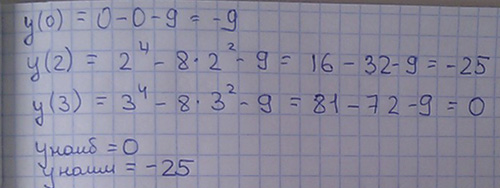 y(0) = 0 - 0 - 9 = -9
y(2) = 2⁴ - 8 · 2² - 9 = 16 - 32 - 9 = -25
y(3) = 3⁴ - 8 · 3² - 9 = 81 - 72 - 9 = 0
yнаиб = 0
yнаим = -25